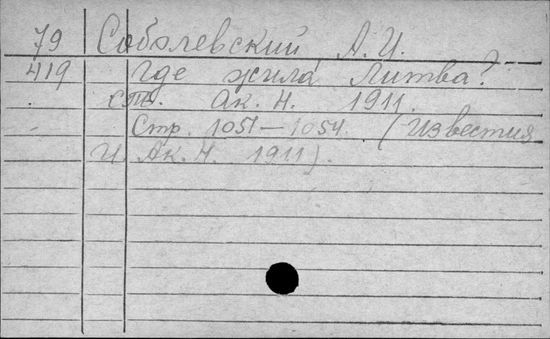 79 Соболевский, А.И.
419 Где жила Литва?
СПб. Ак. Н. 1911.
Стр. 1051—1054. (Известия
И. Ак. Н. 1911).